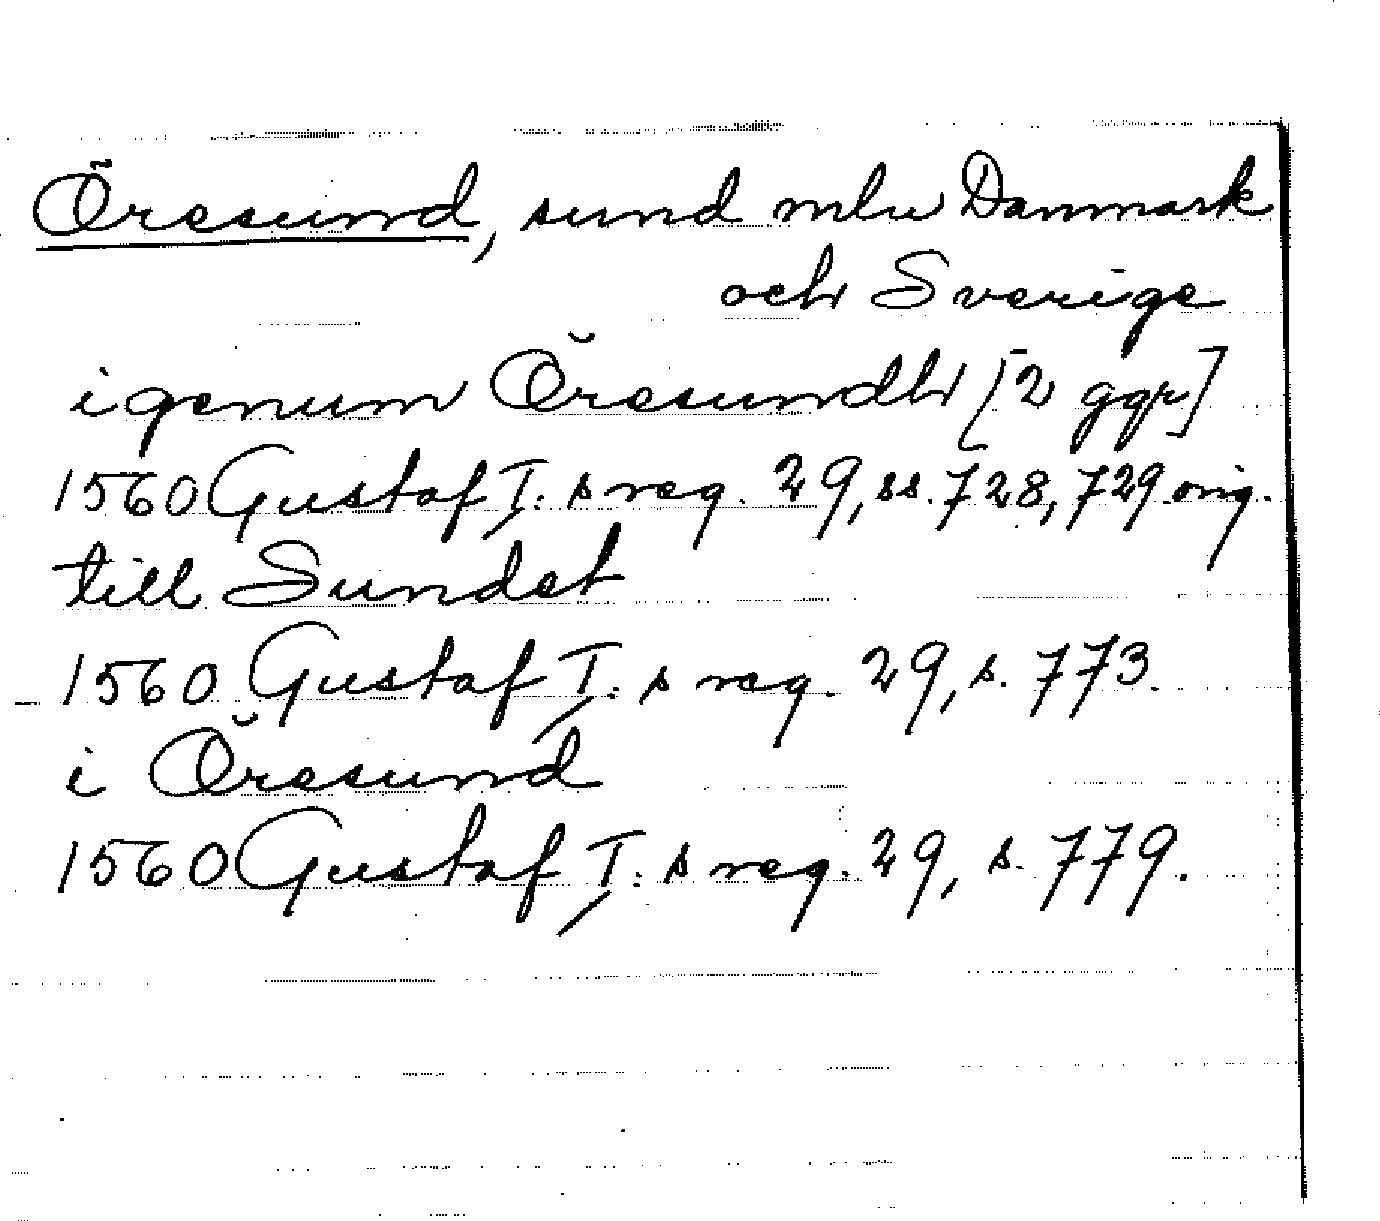 Öresund, sund mln Danmark
och Sverige
igenum Öresundh [2 ggr]
1560 Gustaf I:s reg. 29, ss. 728, 729 orig.
till Sundet
1560 Gustaf I:s reg. 29, s. 773.
i Öresund
1560 Gustaf I:s reg. 29, s. 779.